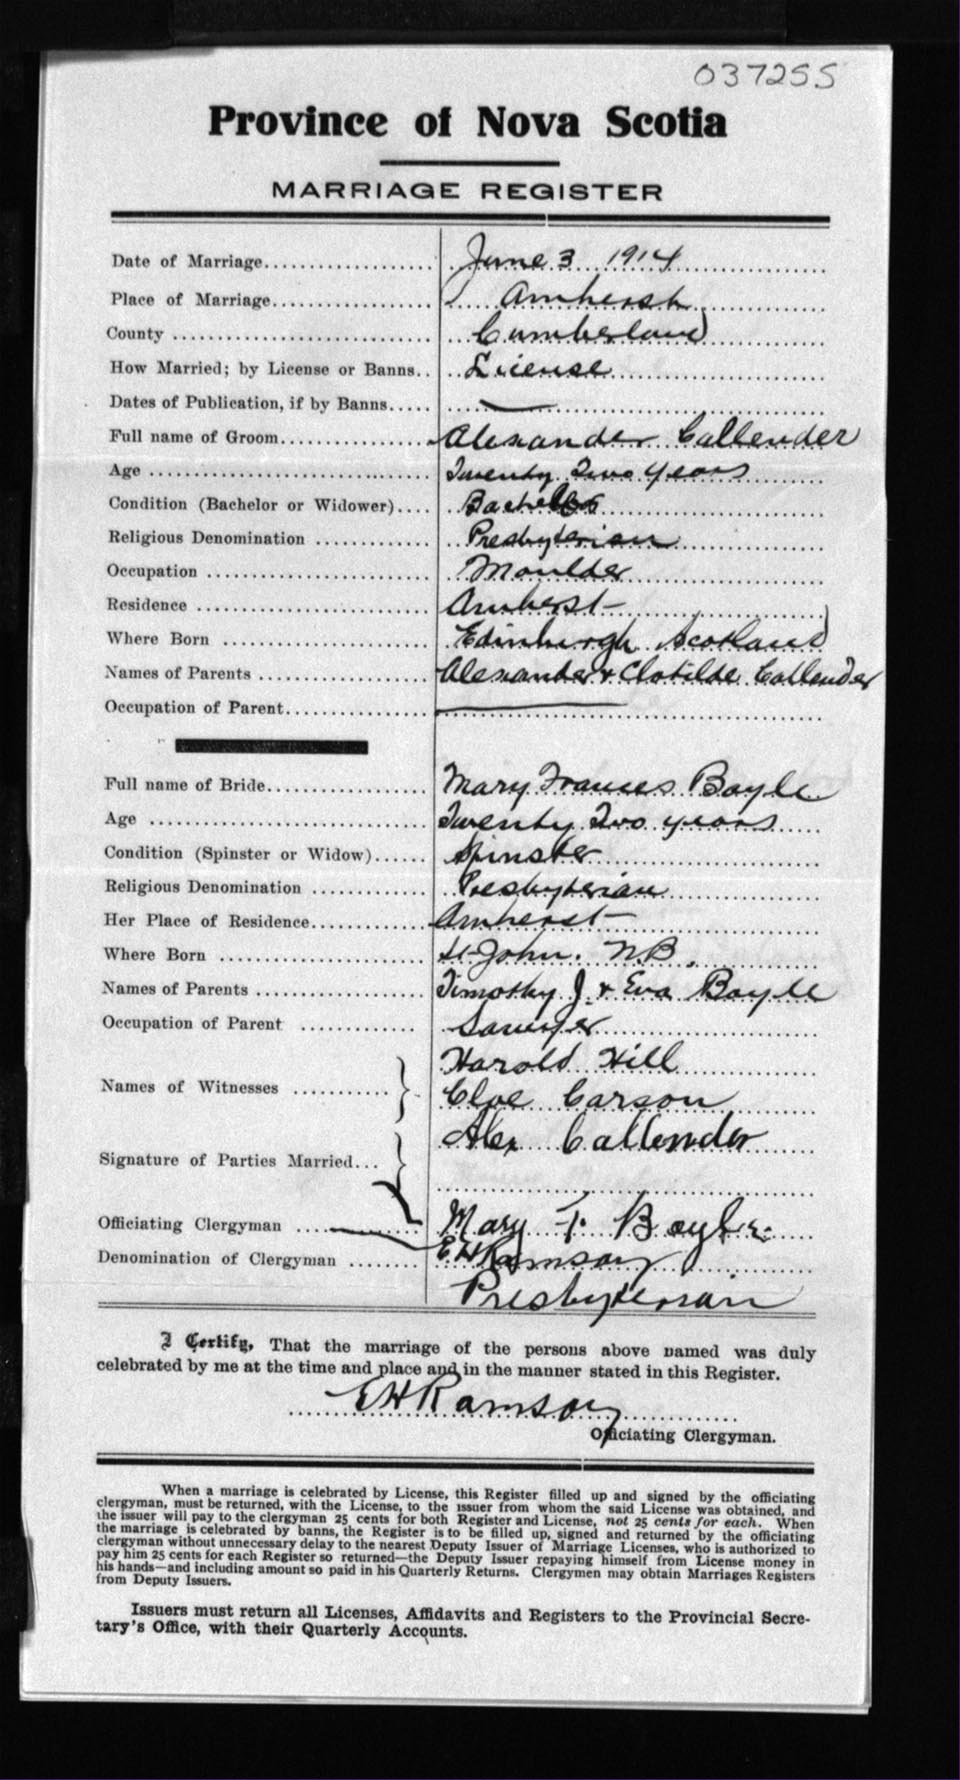 037255
Province of Nova Scotia
MARRIAGE REGISTER
Date of Marriage.................. June 3 1914
Place of Marriage................. Amherst
County ............................ Cumberland
How Married; by License or Banns.. License
Dates of Publication, if by Banns..... —
Full name of Groom................ Alexander Callender
Age .............................. Twenty Two years
Condition (Bachelor or Widower).... Bachelor
Religious Denomination ............. Presbyterian
Occupation ......................... Moulder
Residence ......................... Amherst
Where Born ........................ Edinburgh Scotland
Names of Parents .................. Alexander & Clotilde Callender
Occupation of Parent................ —
Full name of Bride.................. Mary Frances Boyle
Age ............................... Twenty Two years
Condition (Spinster or Widow)...... Spinster
Religious Denomination ............ Presbyterian
Her Place of Residence............. Amherst
Where Born ........................ St John. N.B.
Names of Parents .................. Timothy J & Eva Boyle
Occupation of Parent ............. Sawyer
Harold Hill
Names of Witnesses ........... Cloe Carson
Alex Callender
Signature of Parties Married...
Officiating Clergyman ............. Mary F. Boyle
Denomination of Clergyman ........ E H Ramsay
Presbyterian
I Certify, That the marriage of the persons above named was duly
celebrated by me at the time and place and in the manner stated in this Register.
E H Ramsay
Officiating Clergyman.
When a marriage is celebrated by License, this Register filled up and signed by the officiating
clergyman, must be returned, with the License, to the issuer from whom the said License was obtained, and
the issuer will pay to the clergyman 25 cents for both Register and License, not 25 cents for each. When
the marriage is celebrated by banns, the Register is to be filled up, signed and returned by the officiating
clergyman without unnecessary delay to the nearest Deputy Issuer of Marriage Licenses, who is authorized to
pay him 25 cents for each Register so returned—the Deputy Issuer repaying himself from License money in
his hands—and including amount so paid in his Quarterly Returns. Clergymen may obtain Marriages Registers
from Deputy Issuers.
Issuers must return all Licenses, Affidavits and Registers to the Provincial Secre-
tary's Office, with their Quarterly Accounts.